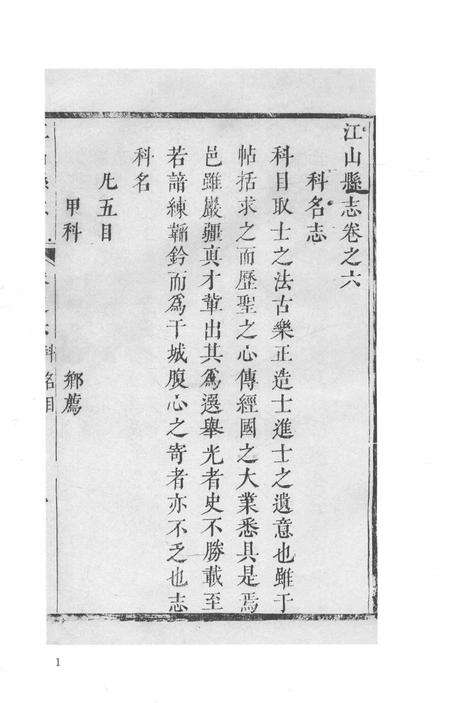 江山縣志卷之六
科名志
科目取士之法古樂正造士進士之遺意也雖于
帖括求之而歷聖之心傳經國之大業悉具是焉
邑雖嚴疆真才輩出其為選舉光者史不勝載至
若諳練韜鈐而為干城腹心之寄者亦不乏也志
科名
凡五目
甲科　鄉薦
科名目
1